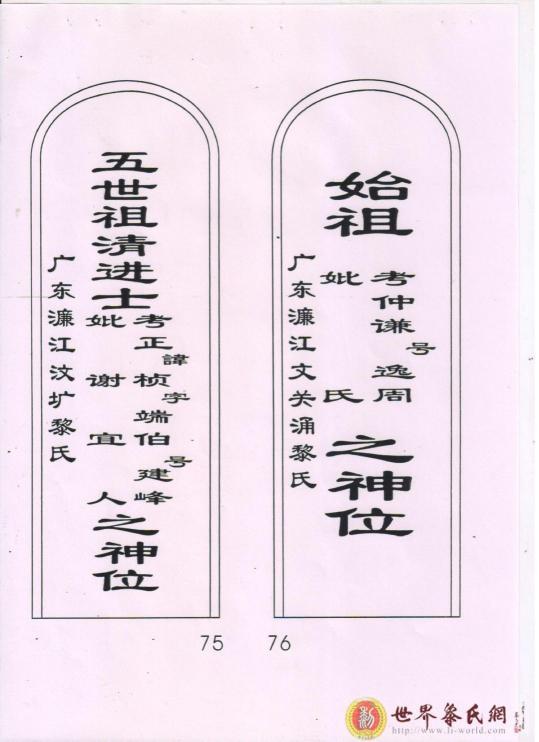 始祖
考仲谦号逸周
妣 氏
之神位
广东濂江文关涌黎氏
76
五世祖清进士
考正諱桢字端伯号建峰
妣谢宜人
之神位
广东濂江汶圹黎氏
75
世界黎氏網
http://www.li-world.com